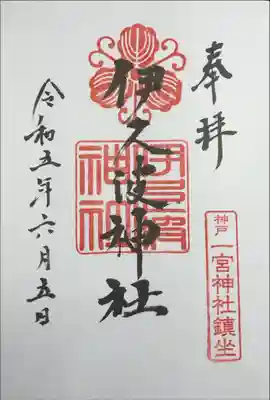 奉拝
伊久波神社
伊久波神社
神戸
一宮神社鎮坐
令和五年六月五日